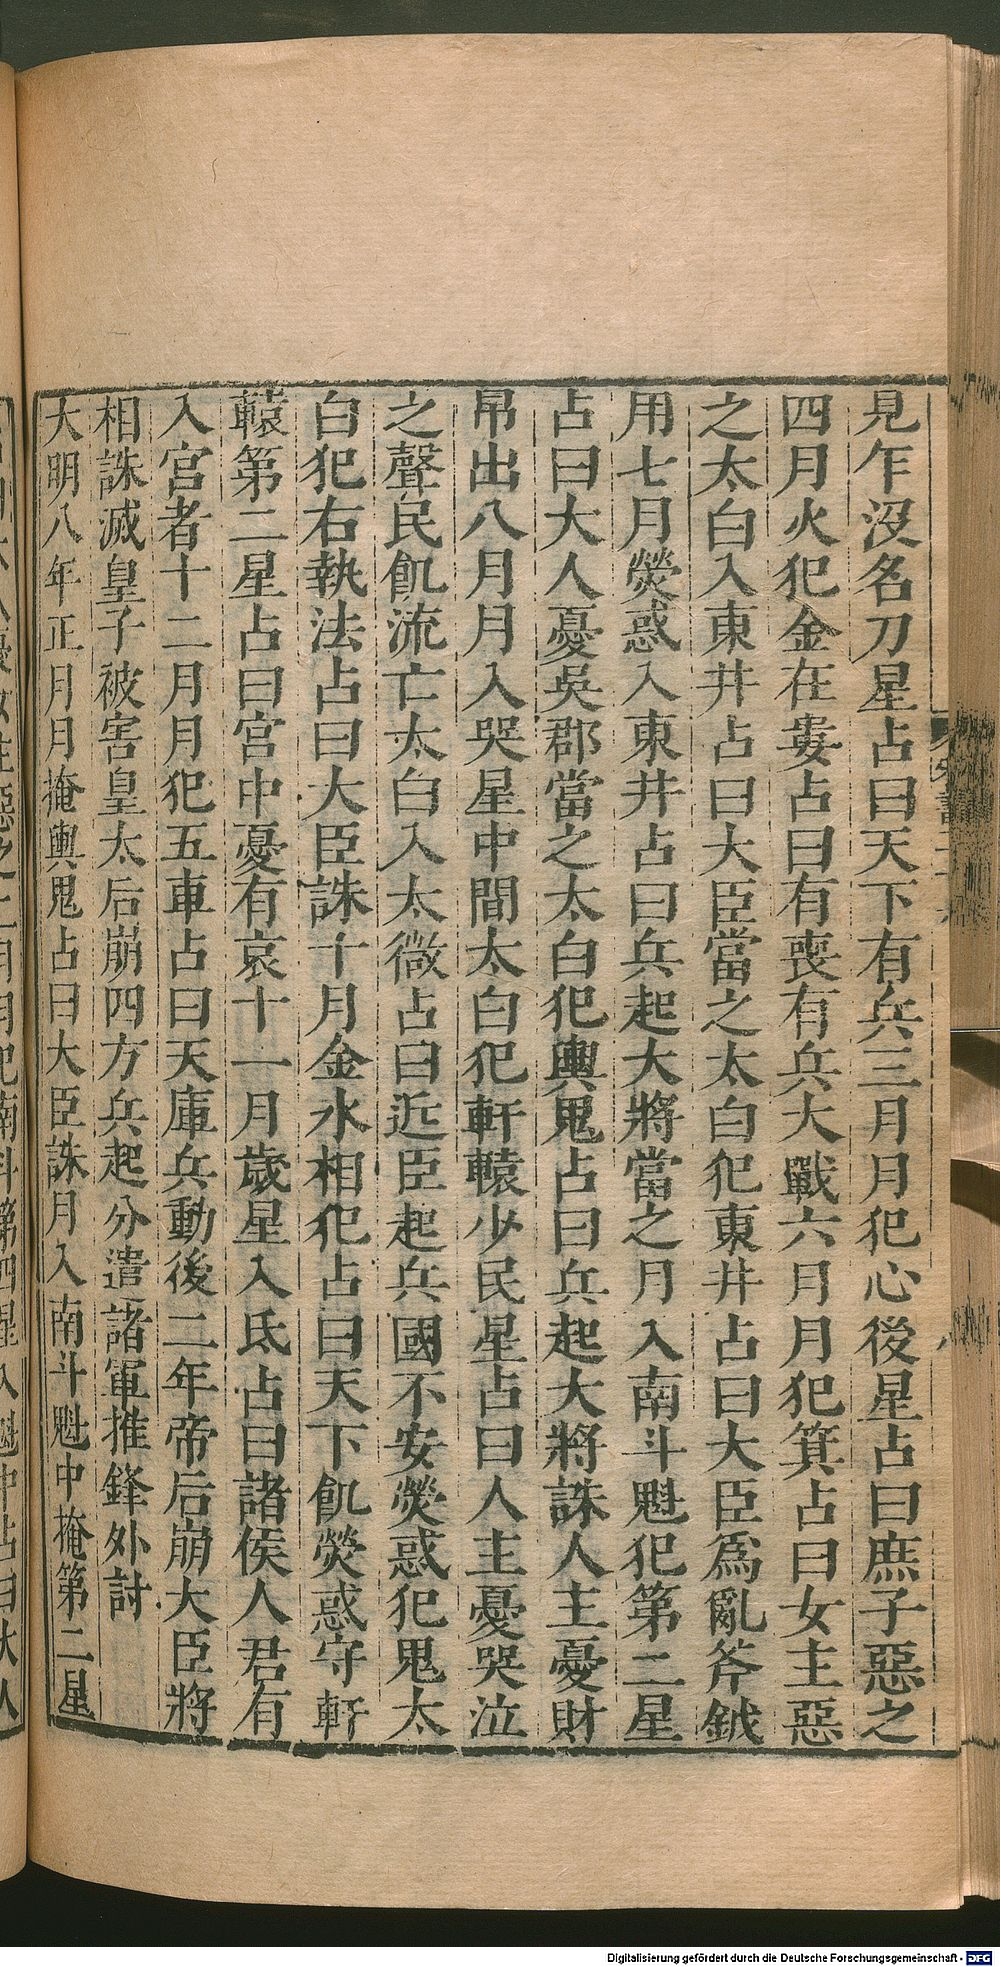 見乍沒名刀星占曰天下有兵三月月犯心後星占曰庶子惡之
四月火犯金在婁占曰有喪有兵大戰六月月犯箕占曰女主惡
之太白入東井占曰大臣當之太白犯東井占曰大臣爲亂斧鉞
用七月熒惑入東井占曰兵起大將當之月入南斗魁犯第二星
占曰大人憂吳郡當之太白犯輿鬼占曰兵起大將誅人主憂財
帛出八月月入哭星中間太白犯軒轅少民星占曰人主憂哭泣
之聲民飢流亡太白入太微占曰近臣起兵國不安熒惑犯鬼太
白犯右執法占曰大臣誅十月金水相犯占曰天下飢熒惑守軒
轅第二星占曰宮中憂有哀十一月歲星入氐占曰諸侯人君有
入宮者十二月月犯五車占曰天庫兵動後二年帝后崩大臣將
相誅滅皇子被害皇太后崩四方兵起分遣諸軍推鋒外討
大明八年正月月掩輿鬼占曰大臣誅月入南斗魁中掩第二星
Digitalisierung gefördert durch die Deutsche Forschungsgemeinschaft - DFG